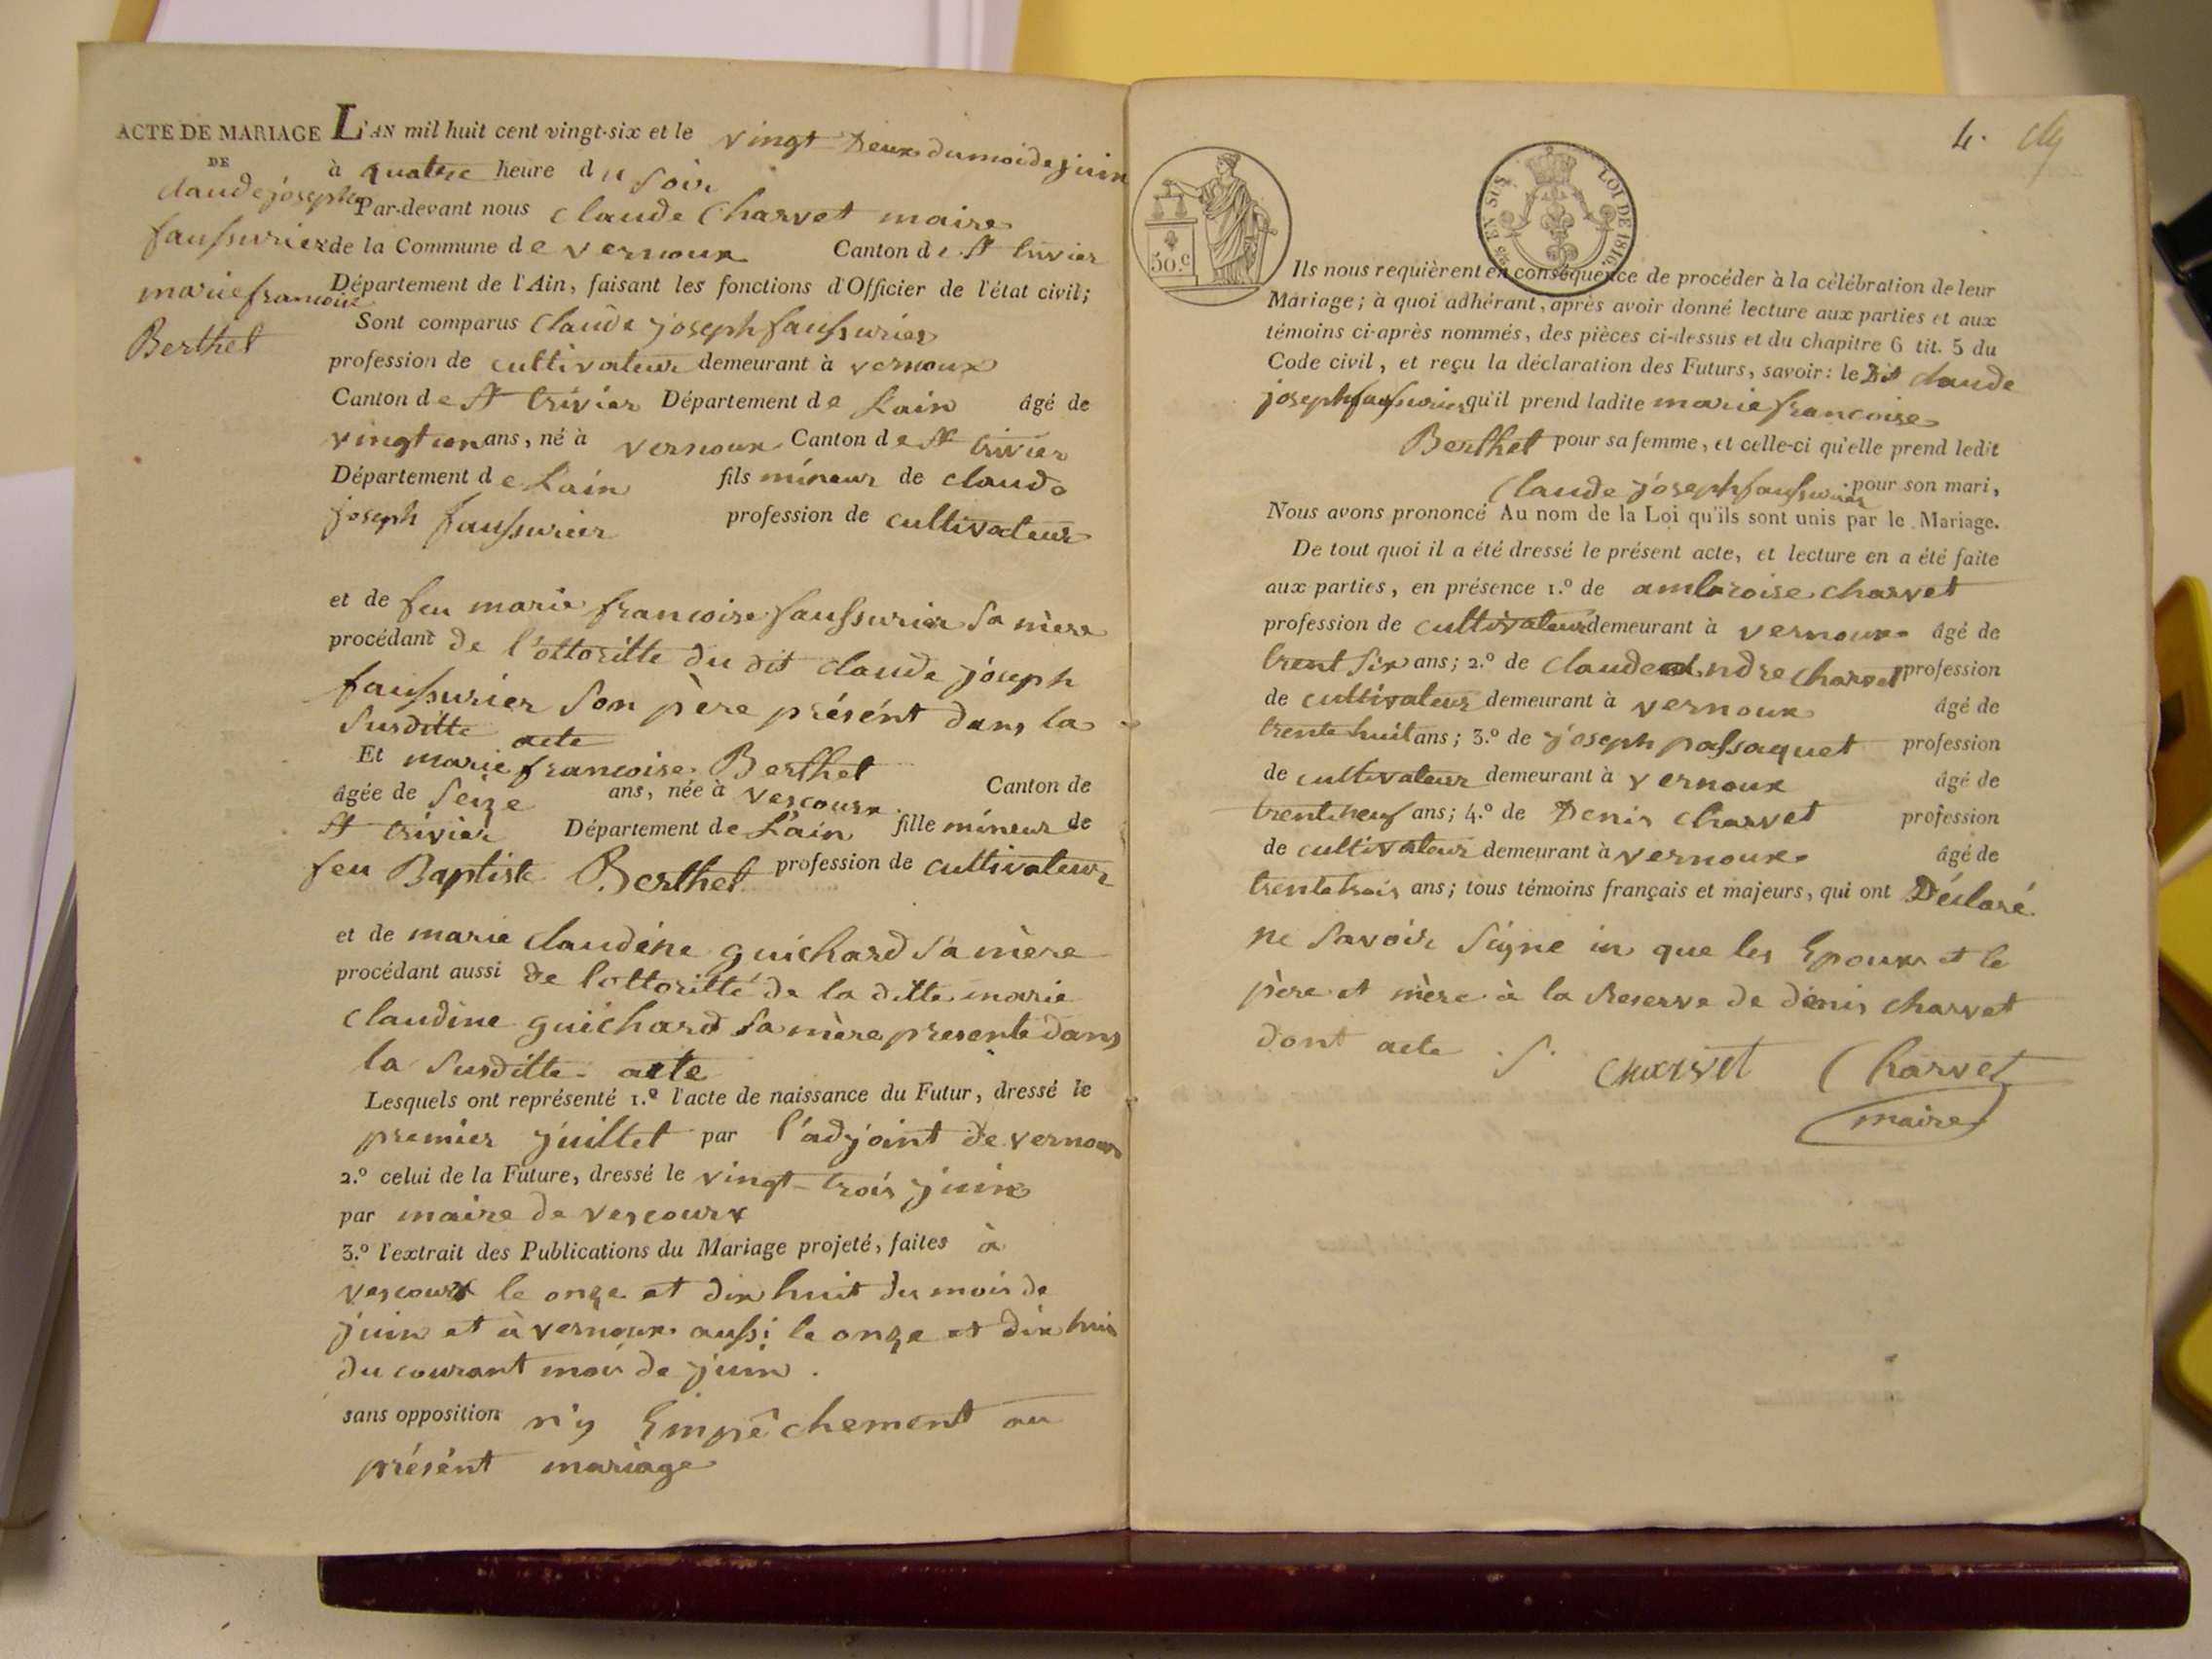 ACTE DE MARIAGE
DE
claude joseph
faussurier
marie francoise
Berthet
L'AN mil huit cent vingt-six et le vingt Deux du moi de juin
à quatre heure du soir
Par-devant nous claude Charvet maire
de la Commune de vernoux Canton de St trivier
Département de l'Ain, faisant les fonctions d'Officier de l'état civil;
Sont comparus Claude joseph faussurier
profession de cultivateur demeurant à vernoux
Canton de St trivier Département de Lain âgé de
vingt un ans, né à vernoux Canton de St trivier
Département de Lain fils mineur de claude
joseph faussurier profession de cultivateur
et de feu marie francoise faussurier sa mère
procédant de l'ottoritte du dit claude joseph
faussurier son père présént dans la
susditte acte
Et marie francoise Berthet
âgée de seize ans, née à vescourx Canton de
St trivier Département de Lain fille mineur de
feu Baptiste Berthet profession de cultivateur
et de marie claudine guichard sa mère
procédant aussi de lottoritté de la ditte marie
claudine guichard sa mère presente dans
la susditte acte
Lesquels ont représenté 1.º l'acte de naissance du Futur, dressé le
premier juillet par l'adjoint de vernoux
2.º celui de la Future, dressé le vingt-trois juin
par maire de vescourx
3.º l'extrait des Publications du Mariage projeté, faites à
vescourx le onze et dix huit du mois de
juin et à vernoux aussi le onze et dix huit
du courant moi de juin.
sans opposition n'y Empêchement au
présént mariage
4.
50.c
EN SUS
LOI DE 1816.
Ils nous requièrent en conséquence de procéder à la célébration de leur
Mariage; à quoi adhérant, après avoir donné lecture aux parties et aux
témoins ci-après nommés, des pièces ci-dessus et du chapitre 6 tit. 5 du
Code civil, et reçu la déclaration des Futurs, savoir: le Dit claude
joseph faussurier qu'il prend ladite marie francoise
Berthet pour sa femme, et celle-ci qu'elle prend ledit
Claude joseph faussurier pour son mari,
Nous avons prononcé Au nom de la Loi qu'ils sont unis par le Mariage.
De tout quoi il a été dressé le présent acte, et lecture en a été faite
aux parties, en présence 1.º de ambroise charvet
profession de cultivateur demeurant à vernoux âgé de
trent six ans; 2.º de claude andre charvet profession
de cultivateur demeurant à vernoux âgé de
trente huit ans; 3.º de joseph passaquet profession
de cultivateur demeurant à vernoux âgé de
trente neuf ans; 4.º de Denis charvet profession
de cultivateur demeurant à vernoux âgé de
trente trois ans; tous témoins français et majeurs, qui ont Déclaré
ne savoir signe in que les Epoux et le
père et mère à la reserve de denis charvet
dont acte
charvet Charvet
maire